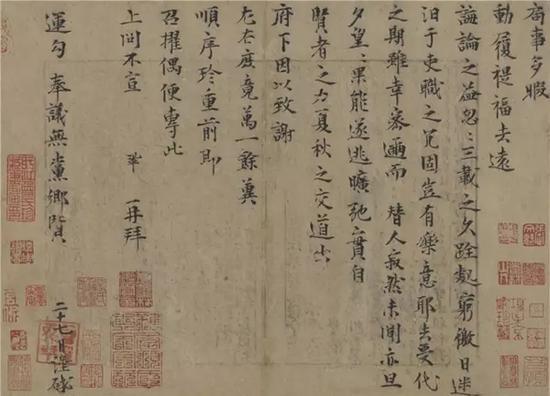 局事多暇
動履禔福去遠
誨論之益忽々三載之久跧處窮徼日迷
汩于吏職之冗固豈有樂意耶去受代
之期雖幸密邇而替人寂然未聞亦旦
夕望々果能遂逃曠弛實自
賢者之力夏秋之交道出
府下因以致謝
左右庶竟萬一餘冀
順序珍重前即
召擢偶便專此
上問不宣 鞏 再拜
運勾奉議無黨鄉賢
二十七日謹啓